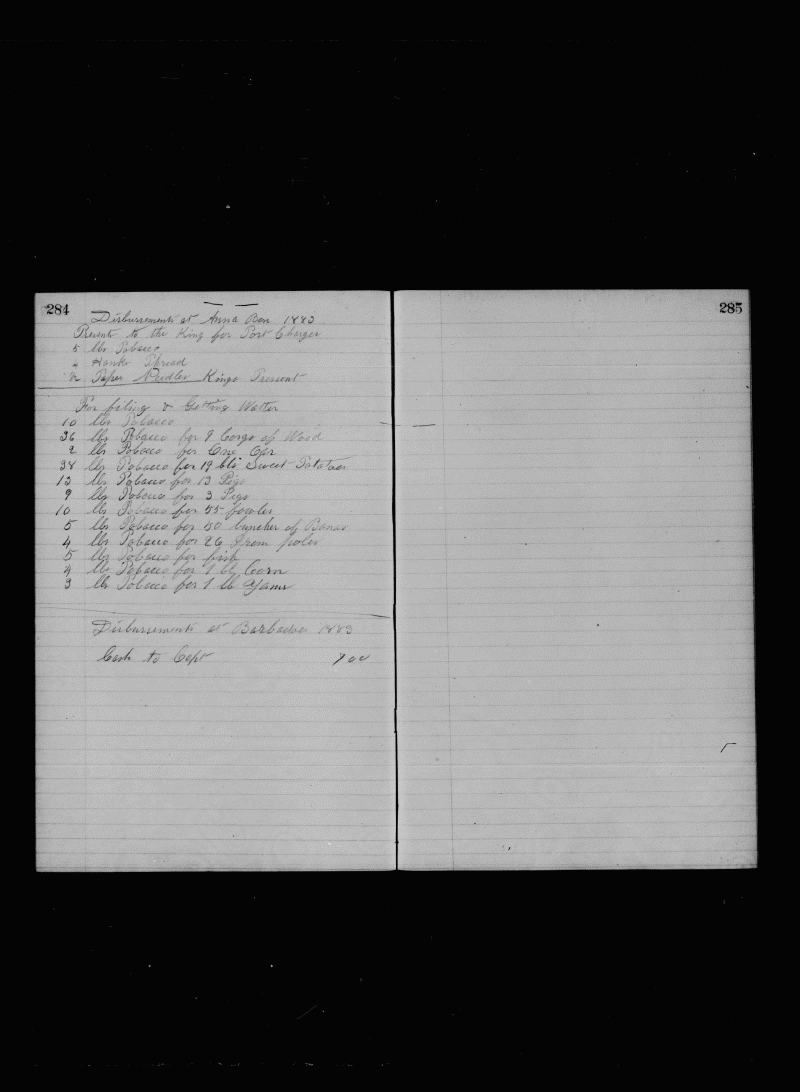 284
Disbursements at Anna Bon 1883
Presents to the King for Port Charges
5 lbs Tobacco
4 Hanks Thread
2 Paper Needles Kings Pressent
For filing & Getting Watter
10 lbs Tobacco
36 lbs Tobacco for 9 Corgs of Wood
2 lbs Tobacco for One Oar
38 lbs Tobacco for 19 bls Sweet Potatoes
13 lbs Tobacco for 13 Pigs
9 lbs Tobacco for 3 Pigs
10 lbs Tobacco for 55 fowles
5 lbs Tobacco for 50 bunches of Banas
4 lbs Tobacco for 26 poles
5 lbs Tobacco for fish
4 lbs Tobacco for 1 bl Corn
3 lbs Tobacco for 1 bl Yams
Disbursements at Barbados 1883
Cash to Capt 700
285